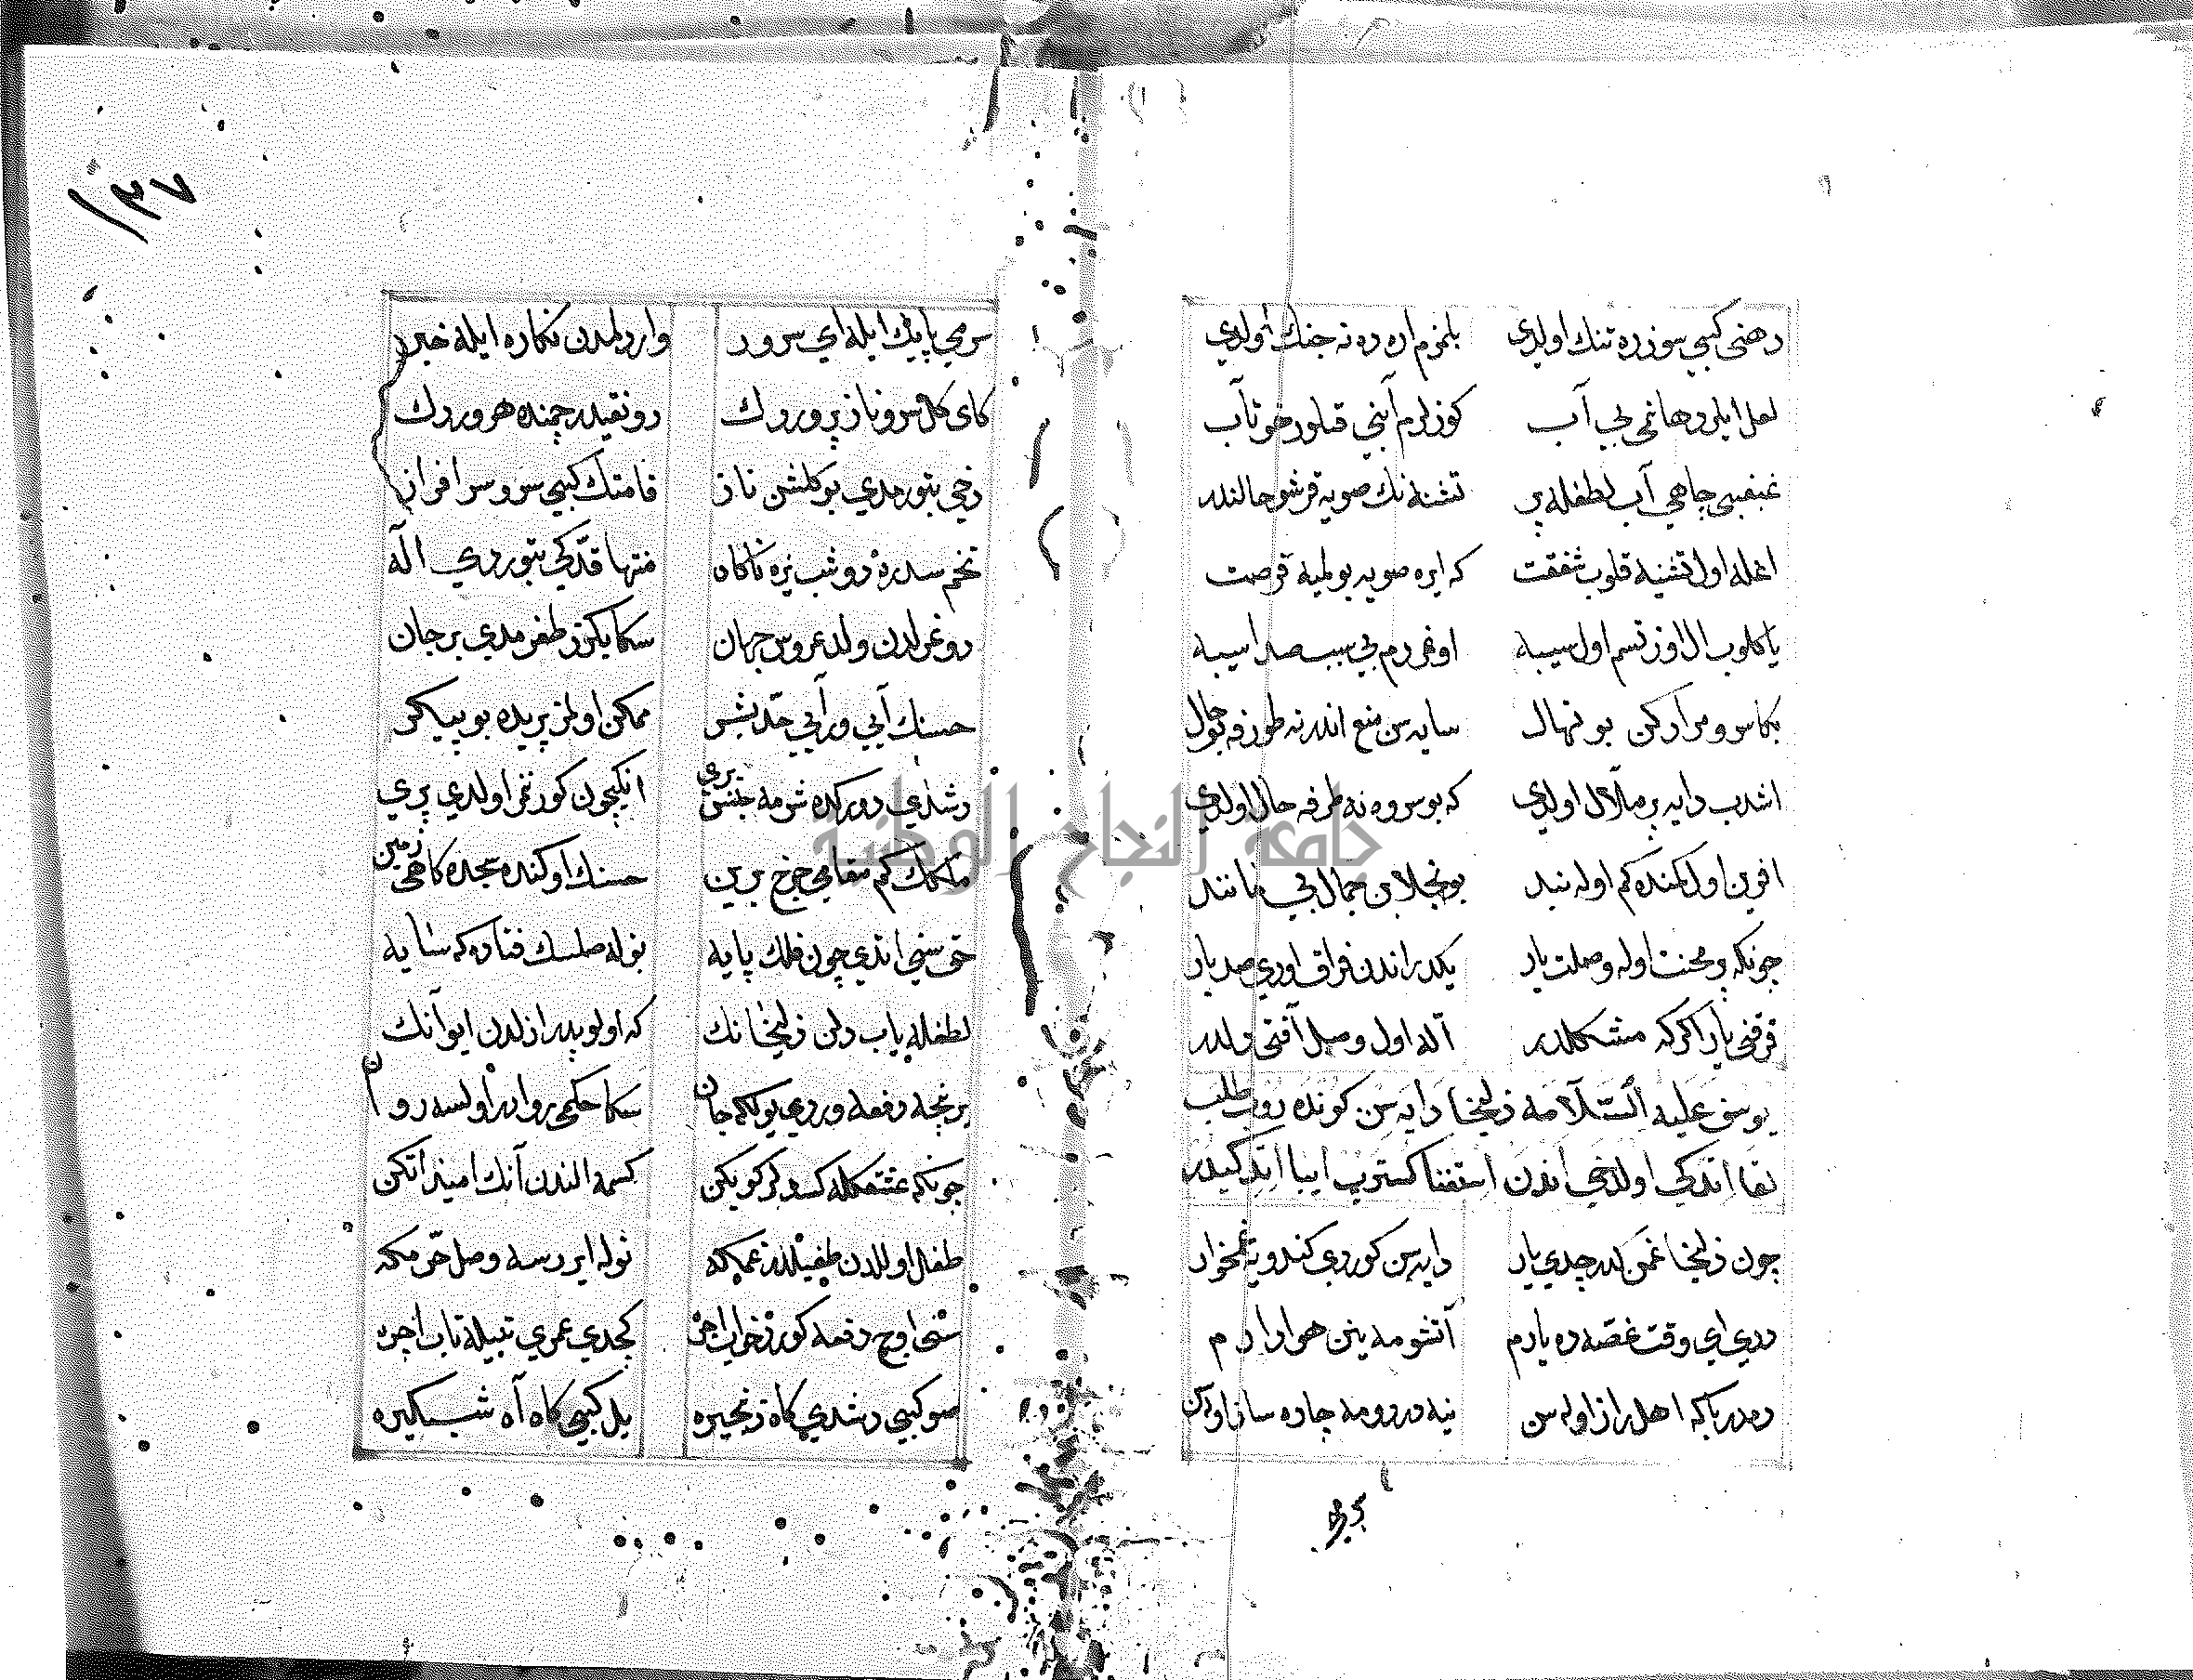 دهنی کبی سوزده تنك اولدی بلمزم اره ده نه جنك اولدی
لعل ایلرو هانمی بی آب کوزلرم آبنی قیلور خوناب
غبغبی چاهی آب لطفله پر تشنه نك صویه قرشو حالندر
اغله اول تشنیه قلوب شفقت که ایره صویه بولمیه فرصت
یا کلوب ال اوزتسم اول سیبه اوغردم بی سبب صد اسیبه
بکا سرو مرادکن بو نهال سایه سن منع اندر نه طوزفه بو حال
اشدب دایه پر ملال اولدی که بو سروه نه طرفه حال اولدی
افرین اول کمنده کم اوله بند بونجلاین جمال بی مانند
چونکه پر محنت اوله وصلت یار یکدر اندن فراق اوری صد بار
فرقتی یار اکرکه مشکلدر آله اول وصل آفتی ولدر
یوسف علیه السلامه زلیخا دایه سن کونده روب طلب
لقا اتدکی اولدخی اندن استغنا کستروب ابا اتدکیدر
چون زلیخا غمن کدرچدی یار دایه سن کوردی کندویه غمخوار
دیدی ای وقت غصه ده یارم آتشومه ینن هوادارم
دمدر باکه اهل راز اوله سن نیه دردومه چاره ساز اوله سن
سرمی پاییك ایله ای سرور وارد لمدن نکاره ایله خبر
کای کل سرو ناز پروردك رونقیدر چمنده هر وردك
دخی بتورمدی بو کلشن ناز قامتك کبی سرو سر افراز
تخم سدره دوشب یره ناکاه منتها قدکی بتوردی اله
دوغرلدن ولد عروس جهان سکا بکزر طغرمدی بر جان
حسنك آیی ورآیی حد بشر ممکن اولمز پریده بو پیکر
دشدی دورکده شرمه جنس پری انکیچون کورنمز اولدی پری
ملکك کم مقامی چرخ برین حسنك اوکنده سجده کاهی زمین
حق سنی اتدی چون فلك پایه بوله صلسك فتاده که سایه
لطفله یاب دلن زلیخانك که اولوبدر ازلدن ایوانك
بر غنچه دفعه وردی یولکه جان سکا حکمی روادر اولسه روان
چونکه عشقکله کسدلر کوبکن کسمه الندن آنك امید اتکن
طفل اوللدن طفیلدر غمکه نوله ایررسه وصل خرمکه
سنی اوچ دفعه کوردی خواب اچره کچدی عمری تبیله تاب اچره
صو کبی دشدی کاه زنجیره یل کبی کاه آه شبکیره
۱۳۷
جامعة النجاح الوطنية